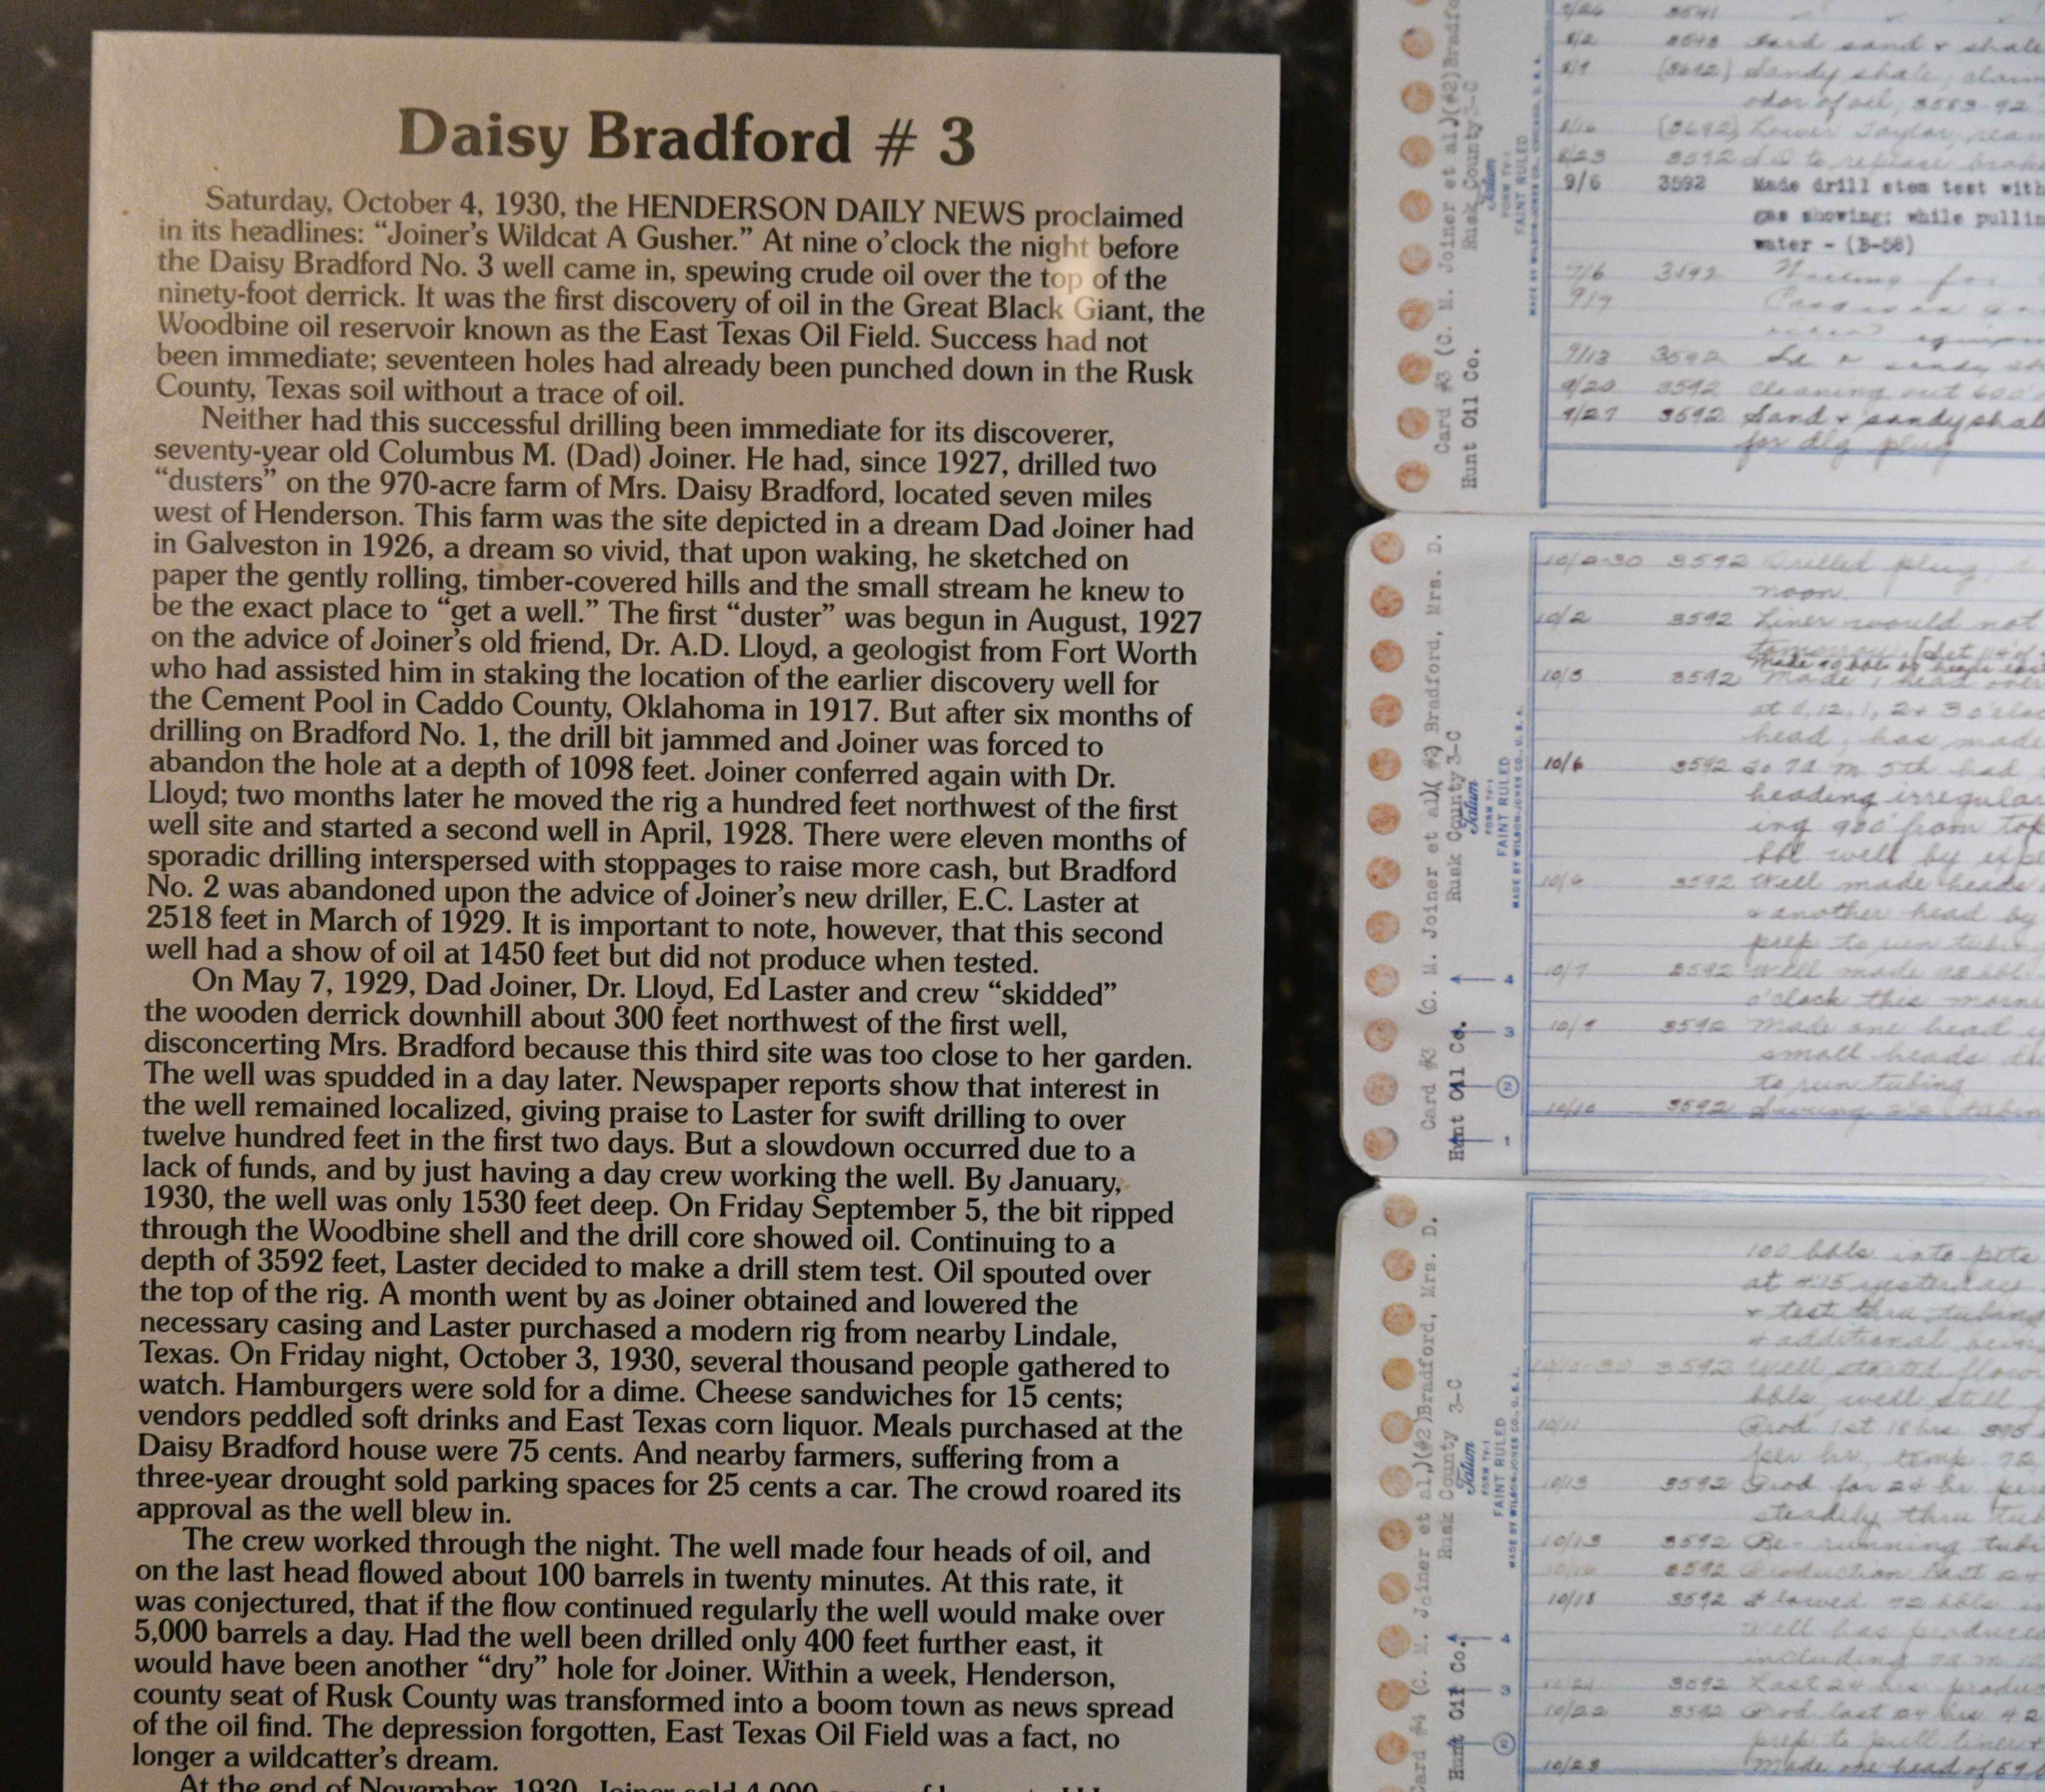 Daisy Bradford # 3
Saturday, October 4, 1930, the HENDERSON DAILY NEWS proclaimed
in its headlines: “Joiner’s Wildcat A Gusher.” At nine o’clock the night before
the Daisy Bradford No. 3 well came in, spewing crude oil over the top of the
ninety-foot derrick. It was the first discovery of oil in the Great Black Giant, the
Woodbine oil reservoir known as the East Texas Oil Field. Success had not
been immediate; seventeen holes had already been punched down in the Rusk
County, Texas soil without a trace of oil.
Neither had this successful drilling been immediate for its discoverer,
seventy-year old Columbus M. (Dad) Joiner. He had, since 1927, drilled two
“dusters” on the 970-acre farm of Mrs. Daisy Bradford, located seven miles
west of Henderson. This farm was the site depicted in a dream Dad Joiner had
in Galveston in 1926, a dream so vivid, that upon waking, he sketched on
paper the gently rolling, timber-covered hills and the small stream he knew to
be the exact place to “get a well.” The first “duster” was begun in August, 1927
on the advice of Joiner’s old friend, Dr. A.D. Lloyd, a geologist from Fort Worth
who had assisted him in staking the location of the earlier discovery well for
the Cement Pool in Caddo County, Oklahoma in 1917. But after six months of
drilling on Bradford No. 1, the drill bit jammed and Joiner was forced to
abandon the hole at a depth of 1098 feet. Joiner conferred again with Dr.
Lloyd; two months later he moved the rig a hundred feet northwest of the first
well site and started a second well in April, 1928. There were eleven months of
sporadic drilling interspersed with stoppages to raise more cash, but Bradford
No. 2 was abandoned upon the advice of Joiner’s new driller, E.C. Laster at
2518 feet in March of 1929. It is important to note, however, that this second
well had a show of oil at 1450 feet but did not produce when tested.
On May 7, 1929, Dad Joiner, Dr. Lloyd, Ed Laster and crew “skidded”
the wooden derrick downhill about 300 feet northwest of the first well,
disconcerting Mrs. Bradford because this third site was too close to her garden.
The well was spudded in a day later. Newspaper reports show that interest in
the well remained localized, giving praise to Laster for swift drilling to over
twelve hundred feet in the first two days. But a slowdown occurred due to a
lack of funds, and by just having a day crew working the well. By January,
1930, the well was only 1530 feet deep. On Friday September 5, the bit ripped
through the Woodbine shell and the drill core showed oil. Continuing to a
depth of 3592 feet, Laster decided to make a drill stem test. Oil spouted over
the top of the rig. A month went by as Joiner obtained and lowered the
necessary casing and Laster purchased a modern rig from nearby Lindale,
Texas. On Friday night, October 3, 1930, several thousand people gathered to
watch. Hamburgers were sold for a dime. Cheese sandwiches for 15 cents;
vendors peddled soft drinks and East Texas corn liquor. Meals purchased at the
Daisy Bradford house were 75 cents. And nearby farmers, suffering from a
three-year drought sold parking spaces for 25 cents a car. The crowd roared its
approval as the well blew in.
The crew worked through the night. The well made four heads of oil, and
on the last head flowed about 100 barrels in twenty minutes. At this rate, it
was conjectured, that if the flow continued regularly the well would make over
5,000 barrels a day. Had the well been drilled only 400 feet further east, it
would have been another “dry” hole for Joiner. Within a week, Henderson,
county seat of Rusk County was transformed into a boom town as news spread
of the oil find. The depression forgotten, East Texas Oil Field was a fact, no
longer a wildcatter’s dream.
At the end of November, 1930, Joiner sold 4,000
Card #3 (C. M. Joiner et al)(#2)Bradfo
Rusk County 3-C
Hunt Oil Co.
Tatum
FORM TV-1
FAINT RULED
MADE BY WILSON-JONES CO., CHICAGO, U. S. A.
3541
8/2 3548 Hard sand & shale
(3692) Sandy shale, claim
odor of oil, 3583-92
(3692) Lower Taylor, ream
8/23 3592
9/6 3592 Made drill stem test with
gas showing; while pullin
water - (B-58)
9/6 3592
9/9
9/13 3592
9/20 3592 Cleaning out 600'
9/27 3592 Sand & sandy shal
for dlg plug
Card #3 (C. M. Joiner et al)( #2) Bradford, Mrs. D.
Rusk County 3-C
Hunt Oil Co.
Tatum
FORM TV-1
FAINT RULED
MADE BY WILSON-JONES CO., U. S. A.
4
3
2
1
10/2-30 3592 Drilled plug
noon
10/2 3592 Liner would not
tomorrow
3592 Made 1 head over
at 11, 12, 1, 2 & 3 o'cloc
head, has made
10/6 3592 To 7 a m 5th had
heading irregular
ing 900' from top
bbl well by expe
10/6 3592 Well made heads
& another head by
prep to run tubing
10/7 3592 Well made
o'clock this morni
10/9 3592 Made one head
small heads
to run tubing
10/10 3592
Card #4 (C. M. Joiner et al,)(#2)Bradford, Mrs. D.
Rusk County 3-C
Hunt Oil Co.
Tatum
FORM TV-1
FAINT RULED
MADE BY WILSON-JONES CO., U. S. A.
4
3
2
100 bbls into pits
at 4:15 yesterday
& test thru tubing
& additional
3592 Well started flow
bbls, well still
10/11 Prod 1st 18 hrs 395
per hr, temp 72
10/13 3592 Prod for 24 hr
steadily thru tub
10/13 3592 Re-running tubi
3592 Production last 24
10/18 3592 Flowed 72 bbls in
Well has produced
including 7 a m
10/21 3592 Last 24 hrs produc
10/22 3592 Prod last 24 hrs 42
prep to pull liner &
10/23 Made one head of 59